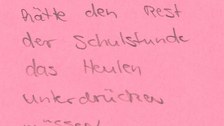 hätte den Rest
der Schulstunde
das Heulen
unterdrücken
müssen!